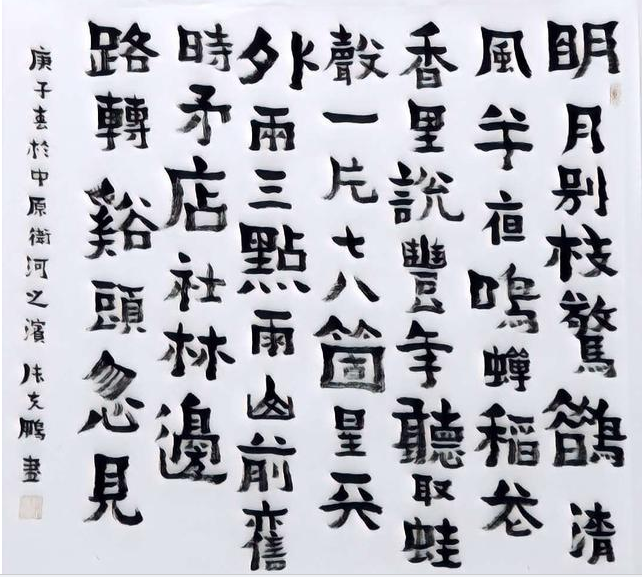 明月别枝驚鵲清
風半夜鳴蟬稻花
香里説豐年聽取蛙
聲一片七八箇星天
外兩三點雨山前舊
時矛店社林邊
路轉谿頭忽見
庚子春於中原衛河之濱 鵬書